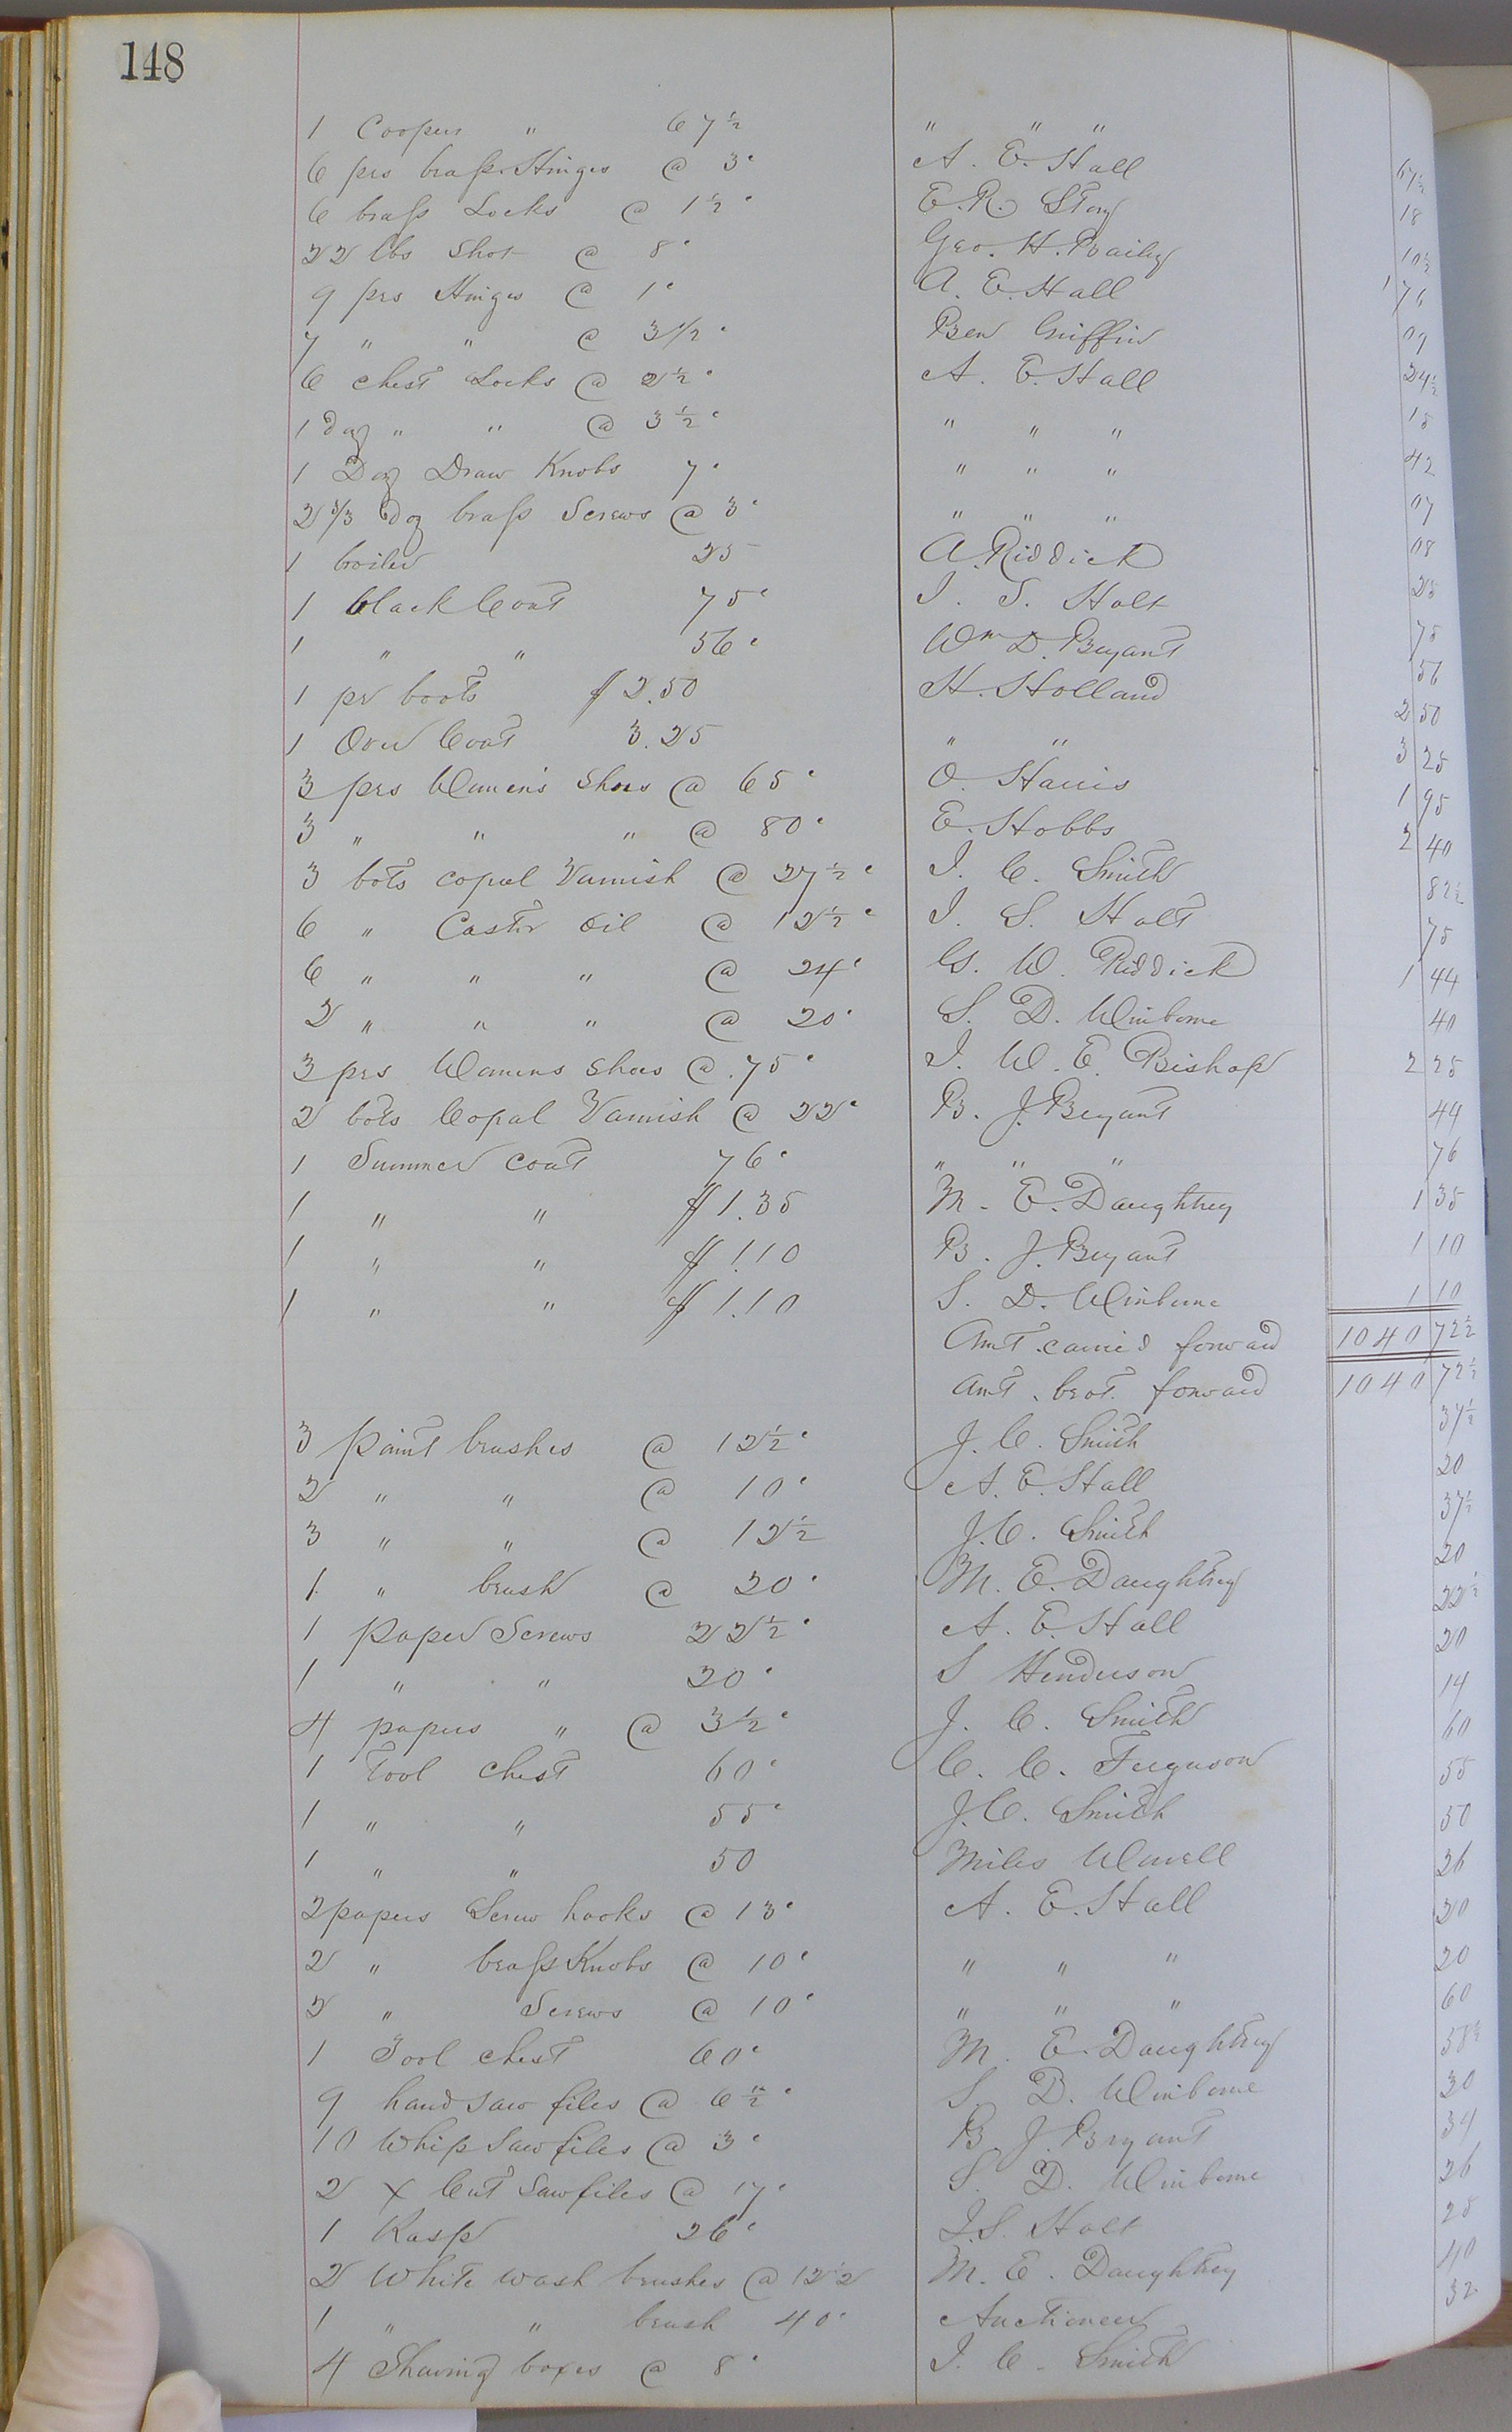 148
1 Coopers " 67½ " " " 67½
6 prs brass Hinges @ 3c A. E. Hall 18
6 brass Locks @ 1½c E. R. Story 10½
22 lbs Shot @ 8c Geo. H. Bailey 1 76
9 prs Hinges @ 1c A. E. Hall 09
7 " " @ 3½c Ben Griffin 24½
6 chest Locks @ 2½c A. E. Hall 15
1 doz " " @ 3½c " " " 42
1 Doz Draw Knobs 7c " " " 07
2⅔ doz brass Screws @ 3c " " " 08
1 broiler 25 A. Riddick 25
1 black Coat 75c J. S. Holt 75
1 " " 56c Wm D. Bryant 56
1 pr boots $2.50 H. Holland 2 50
1 Over Coat 3.25 " " 3 25
3 prs Women's Shoes @ 65c O. Harris 1 95
3 " " " @ 80c E. Hobbs 2 40
3 bots copal Varnish @ 27½c J. C. Smith 82½
6 " Castor Oil @ 12½c J. S. Holt 75
6 " " " @ 24c G. W. Riddick 1 44
2 " " " @ 20c S. D. Winborne 40
3 prs Womens Shoes @ .75c J. W. E. Bishop 2 25
2 bots Copal Varnish @ 22c B. J. Bryant 44
1 Summer Coat 76c " " " 76
1 " " $1.35 M. E. Daughtrey 1 35
1 " " $1.10 B. J. Bryant 1 10
1 " " $1.10 S. D. Winborne 1 10
Amt. carried forward 1040 72½
Amt. brot. forward 1040 72½
3 Paint brushes @ 12½c J. C. Smith 37½
2 " " @ 10c A. E. Hall 20
3 " " @ 12½ J. C. Smith 37½
1 " brush @ 20c M. E. Daughtrey 20
1 Paper Screws 22½c A. E. Hall 22½
1 " " 20c S Henderson 20
4 papers " @ 3½c J. C. Smith 14
1 Tool Chest 60c C. C. Ferguson 60
1 " " 55c J. C. Smith 55
1 " " 50 Miles 50
2 papers Screw hooks @ 13c A. E. Hall 26
2 " brass Knobs @ 10c " " " 20
2 " Screws @ 10c " " " 20
1 Tool chest 60c M. E. Daughtrey 60
9 hand Saw files @ 6½c S. D. Winborne 58½
10 Whip Saw files @ 3c B. J. Bryant 30
2 X Cut Saw files @ 17c S. D. Winborne 34
1 Rasp 26c J. S. Holt 26
2 White wash brushes @ 12½ M. E. Daughtrey 25
1 " " brush 40c Auctioneer 40
4 Shaving boxes @ 8c J. C. Smith 32